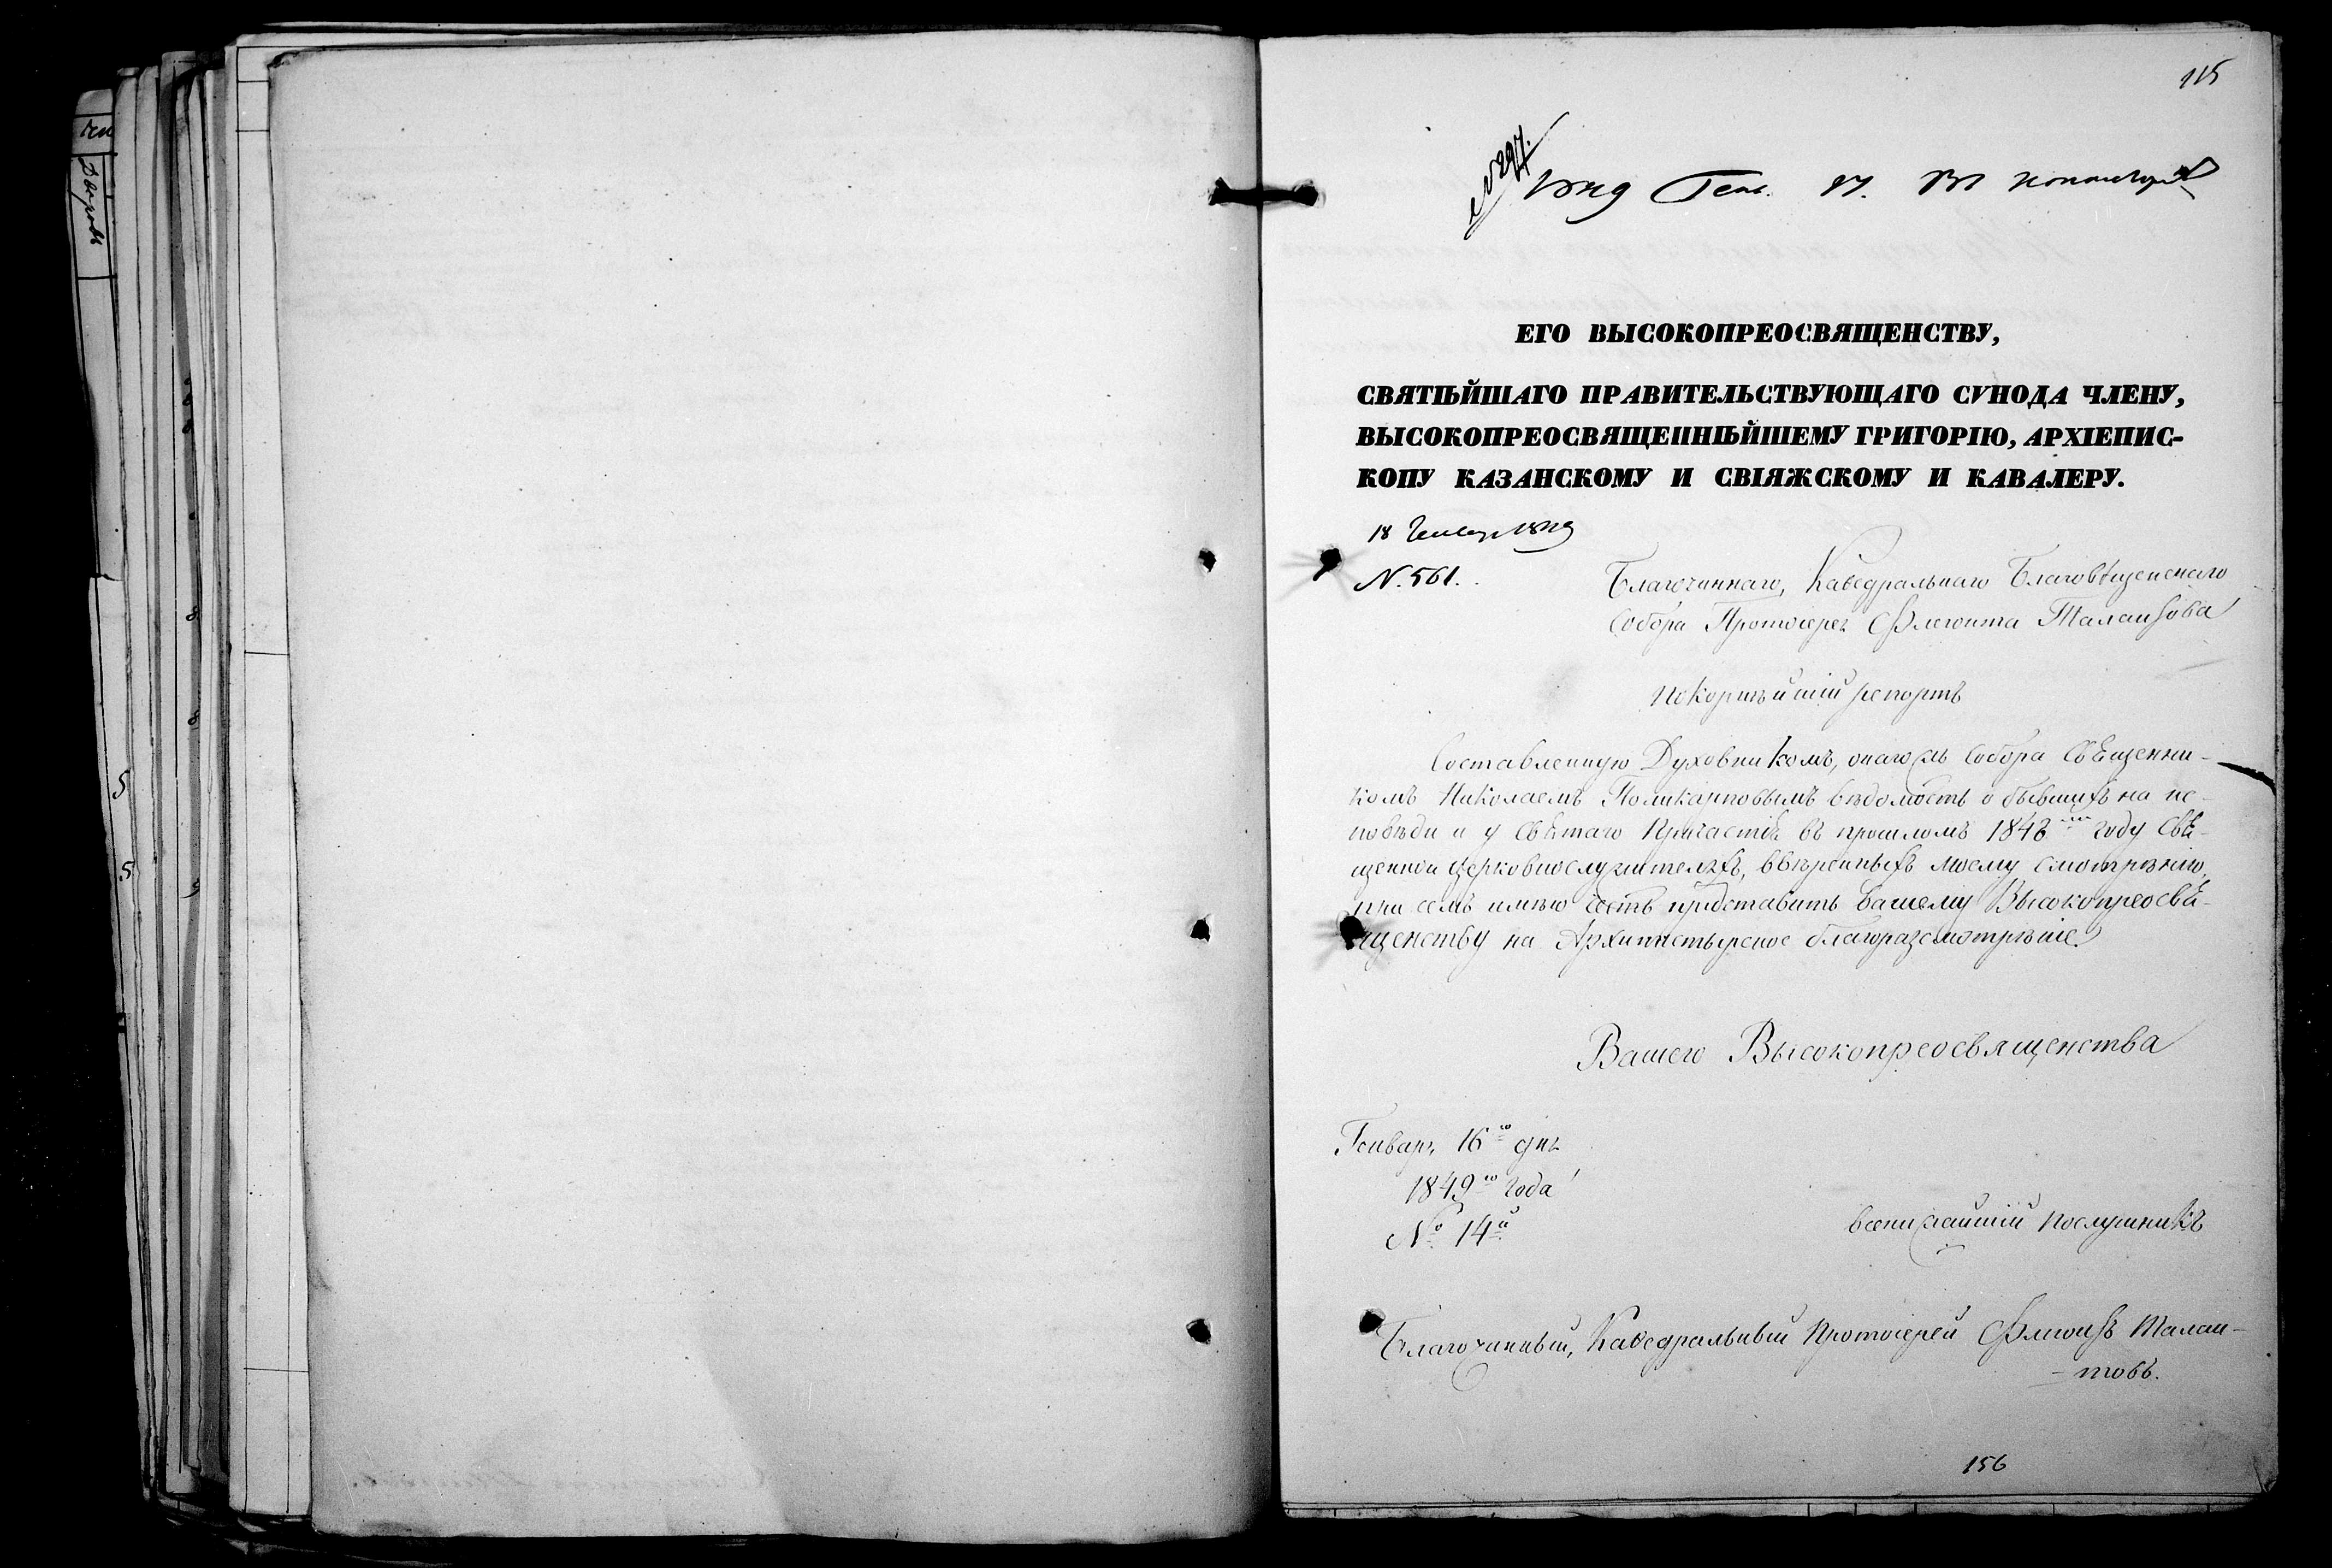 115
№ 297.
1849 Генв. 17. Въ консисторію
ЕГО ВЫСОКОПРЕОСВЯЩЕНСТВУ,
СВЯТѢЙШАГО ПРАВИТЕЛЬСТВУЮЩАГО СѴНОДА ЧЛЕНУ,
ВЫСОКОПРЕОСВЯЩЕННѢЙШЕМУ ГРИГОРІЮ, АРХІЕПИС-
КОПУ КАЗАНСКОМУ И СВІЯЖСКОМУ И КАВАЛЕРУ.
18 Генвар 1849
N. 561.
Благочиннаго, Каѳедральнаго Благовѣщенскаго
Собора Протоіерея Флегонта Талантова
покорнѣйшій репортъ
Составленную Духовникомъ, онаго жъ Собора Священни-
комъ Николаемъ Поликарповымъ вѣдомость о бывшихъ на ис-
повѣди и у Святаго Причастія въ прошломъ 1848 году Свя-
щенно и Церковнослужителяхъ, ввѣренныхъ моему смотрѣнію,
при семъ имѣю честь представить Вашему Высокопреосвя-
щенству на Архипастырское благоразсмотрѣніе.
Вашего Высокопреосвященства
Генваря 16го дня
1849го года
№ 14й
всенижайшій послушникъ
Благочинный, Каѳедральный Протоіерей Флегонтъ Талан-
- товъ.
156
5
5
Дворовъ